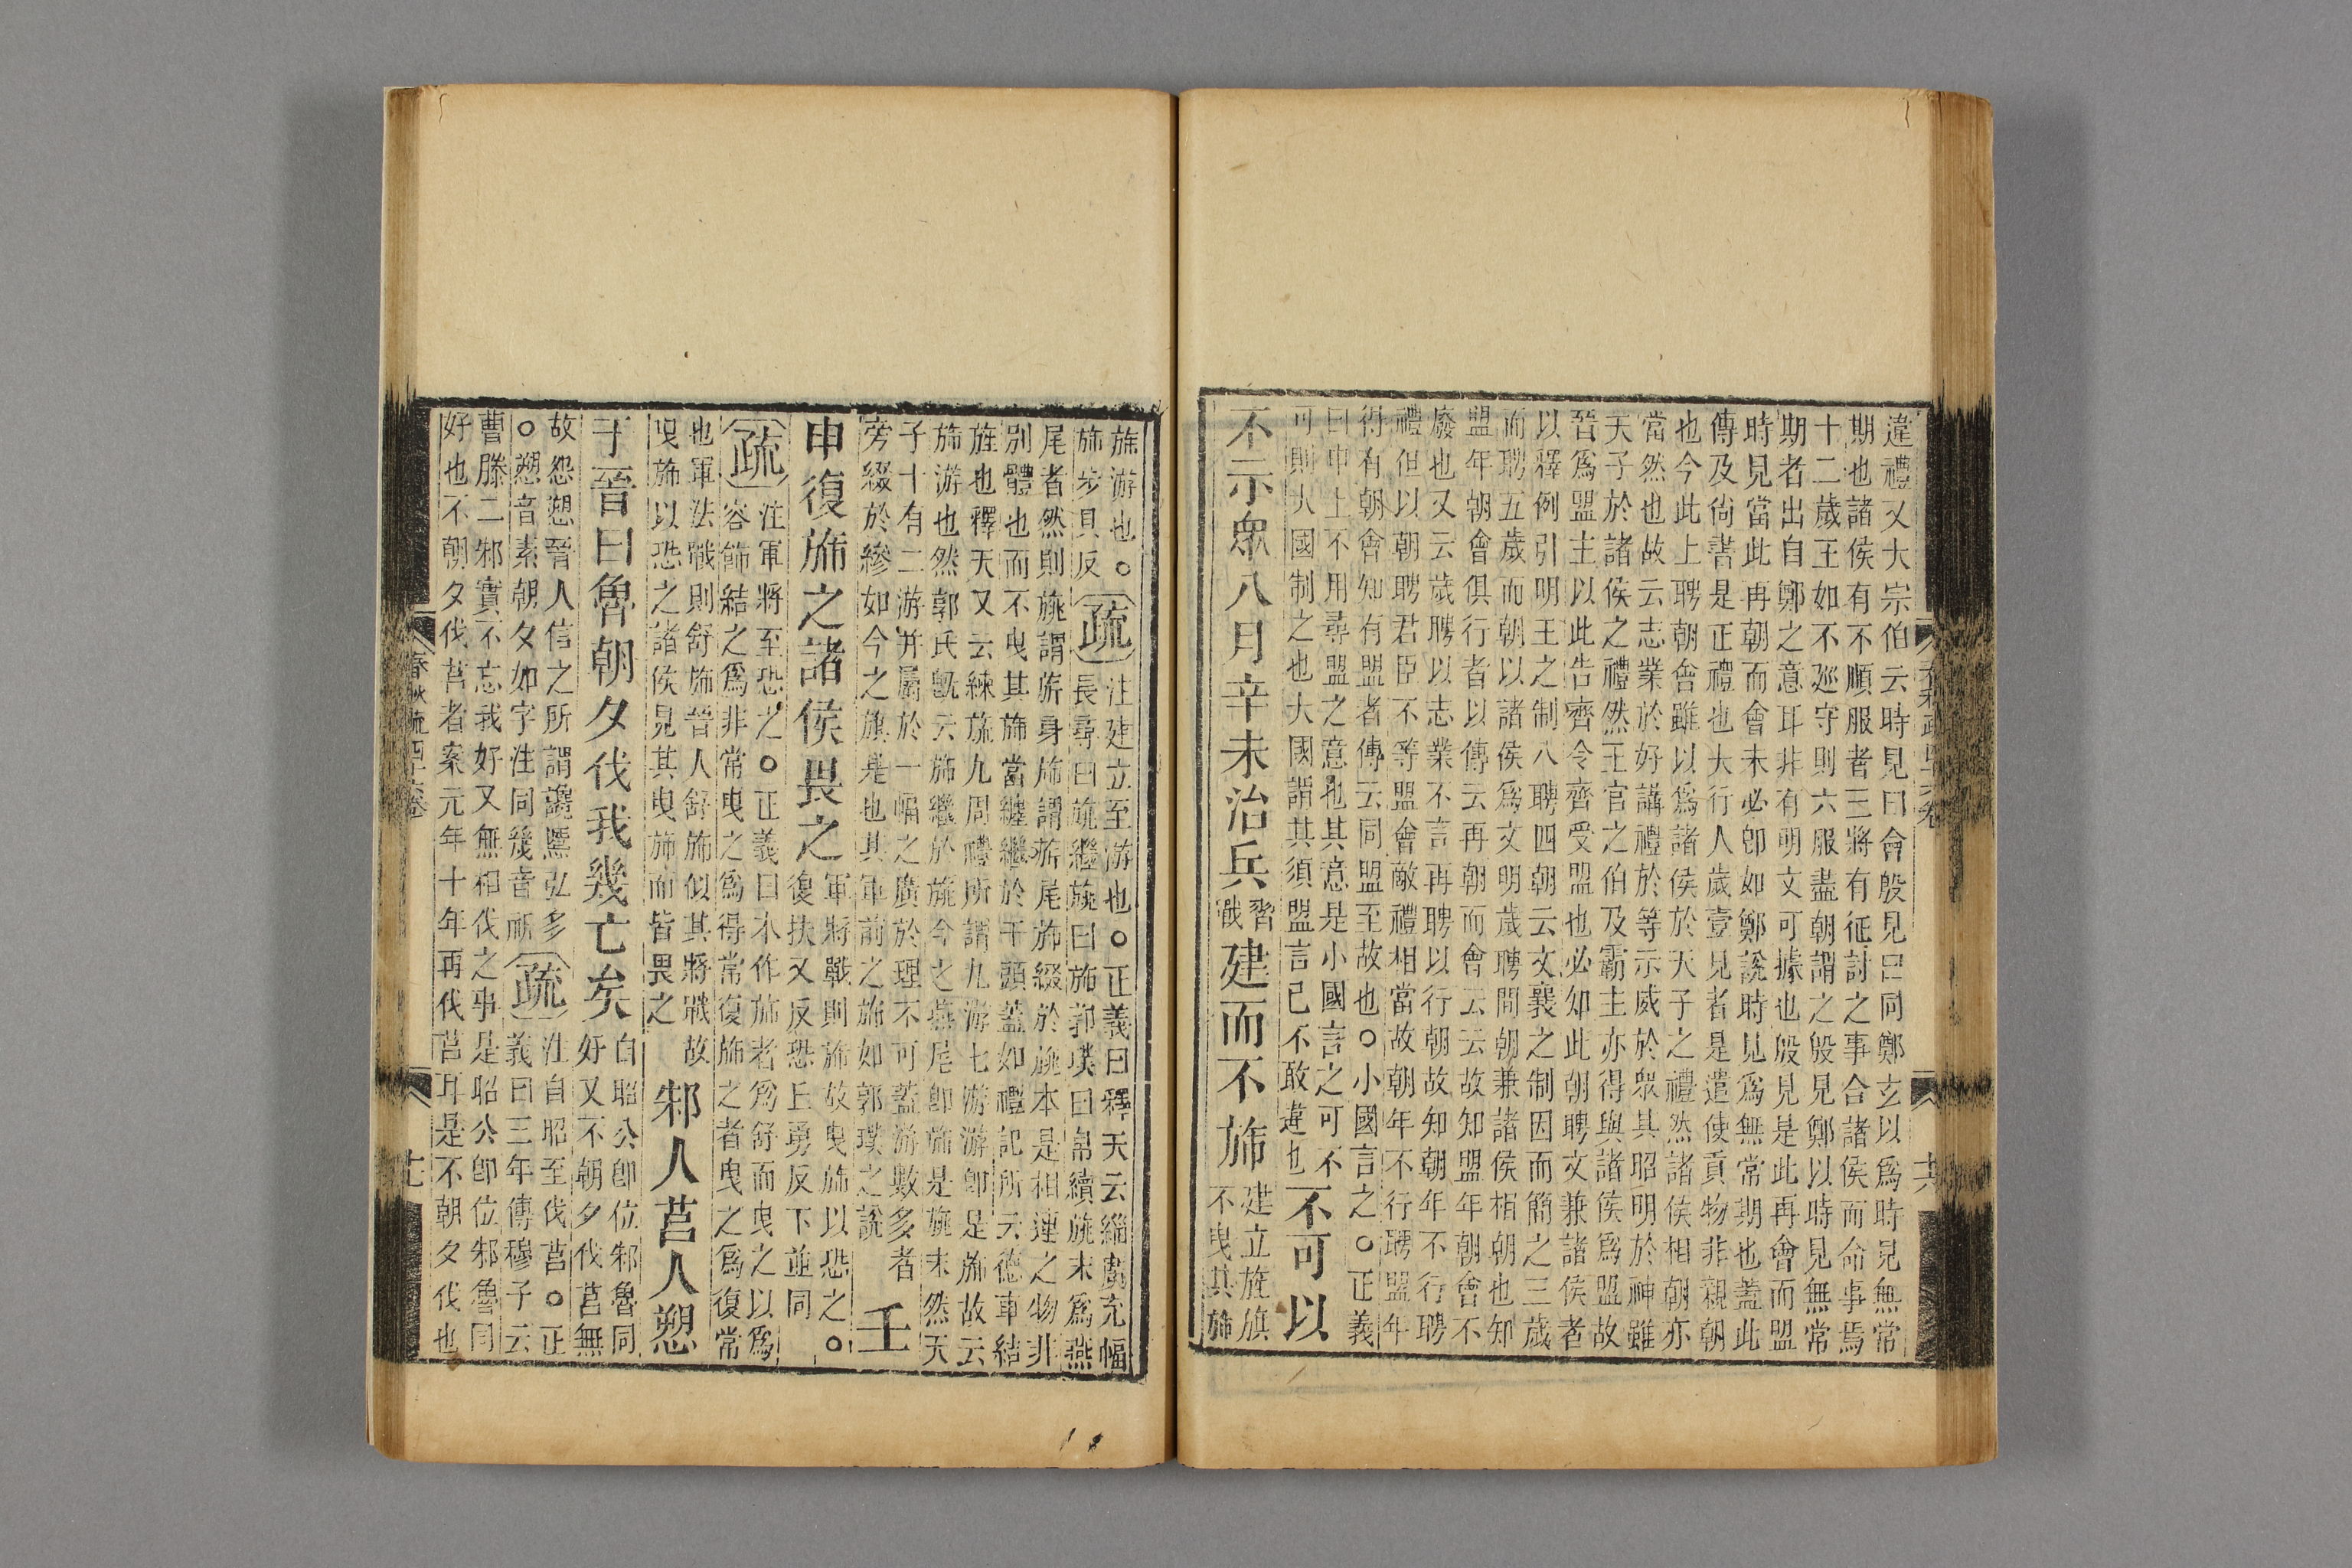 違禮又大宗伯云時見曰會殷見曰同鄭玄以爲時見無常
期也諸侯有不順服者王將有征討之事合諸侯而命事焉
十二歲王如不廵守則六服盡朝謂之殷見鄭以時見無常
期者出自鄭之意耳非有明文可據也殷見是此再會而盟
時見當此再朝而會未必卽如鄭說時見爲無常期也蓋此
傳及尙書是正禮也大行人歲壹見者是遣使貢物非親朝
也今此上聘朝會雖以爲諸侯於天子之禮然諸侯相朝亦
當然也故云志業於好講禮於等示威於眾其昭明於神雖
天子於諸侯之禮然王官之伯及霸主亦得與諸侯爲盟故
晉爲盟主以此告齊令齊受盟也必知此朝聘文兼諸侯者
以釋例引明王之制八聘四朝云文襄之制因而簡之三歲
而聘五歲而朝以諸侯爲文明歲聘問朝兼諸侯相朝也知
盟年朝會俱行者以傳云再朝而會云云故知盟年朝會不
廢也又云歲聘以志業不言再聘以行朝故知朝年不行聘
禮但以朝聘君臣不等盟會敵禮相當故朝年不行聘盟年
得有朝會知有盟者傳云同盟至故也○小國言之○正義
曰申上不用尋盟之意也其意是小國言之可不
可則大國制之也大國謂其須盟言已不敢違也
不可以
不示眾八月辛未治兵
習
戰
建而不旆
建立旌旗
不曳其旆
春秋疏四十六卷
共
旆游也○
旆步貝反
疏
注建立至游也○正義曰釋天云緇廣充幅
長尋曰旐繼旐曰旆郭璞曰帛續旐末爲燕
尾者然則旐謂旂身旆謂旂尾旆綴於旐本是相連之物非
別體也而不曳其旆當纏繼於干頭蓋如禮記所云德車結
旌也釋天又云練旒九周禮所謂九游七游游卽是旆故云
旆游也然郭氏旣云旆繼於旐今之燕尾卽旆是旐末然天
子十有二游并屬於一幅之廣於理不可蓋游數多者
旁綴於縿如今之旗是也其軍前之旆如郭璞之說
壬
申復旆之諸侯畏之
軍將戰則旆故曳旆以恐之○
復扶又反恐丘勇反下並同
疏
注軍將至恐之○正義曰本作旆者爲舒而曳之以爲
容飾結之爲非常曳之爲得常復旆之者曳之爲復常
也軍法戰則舒旆晉人舒旆似其將戰故
曳旆以恐之諸侯見其曳旆而皆畏之
邾人莒人愬
于晉曰魯朝夕伐我幾亡矣
自昭公卽位邾魯同
好又不朝夕伐莒無
故怨愬晉人信之所謂讒慝弘多
○愬音素朝夕如字注同幾音祈
疏
注自昭至伐莒○正
義曰三年傳穆子云
曹滕二邾實不忘我好又無相伐之事是昭公卽位邾魯同
好也不朝夕伐莒者案元年十年再伐莒耳是不朝夕伐也
春秋疏四十六卷
十七